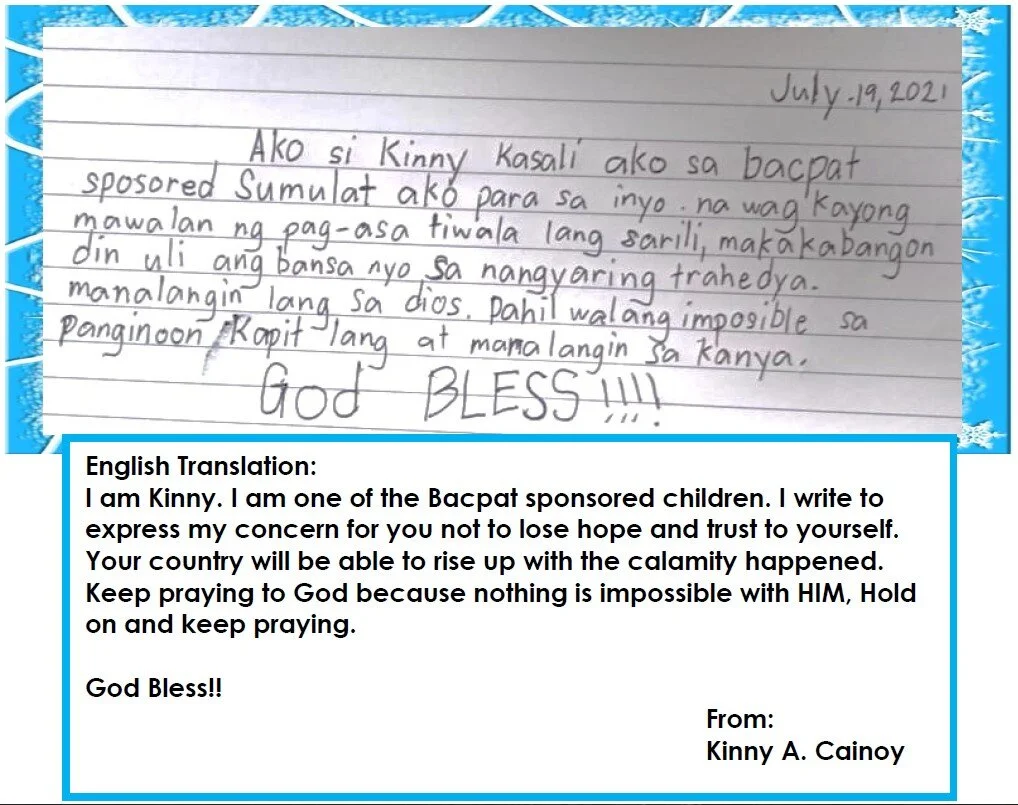 July.19,2021
Ako si Kinny Kasali ako sa bacpat
sposored Sumulat ako para sa inyo. na wag kayong
mawalan ng pag-asa tiwala lang sarili, makakabangon
din uli ang bansa nyo sa nangyaring trahedya.
manalangin lang sa dios. Dahil walang imposible sa
Panginoon, Kapit lang at manalangin sa Kanya.
God BLESS!!!!
English Translation:
I am Kinny. I am one of the Bacpat sponsored children. I write to
express my concern for you not to lose hope and trust to yourself.
Your country will be able to rise up with the calamity happened.
Keep praying to God because nothing is impossible with HIM, Hold
on and keep praying.
God Bless!!
From:
Kinny A. Cainoy